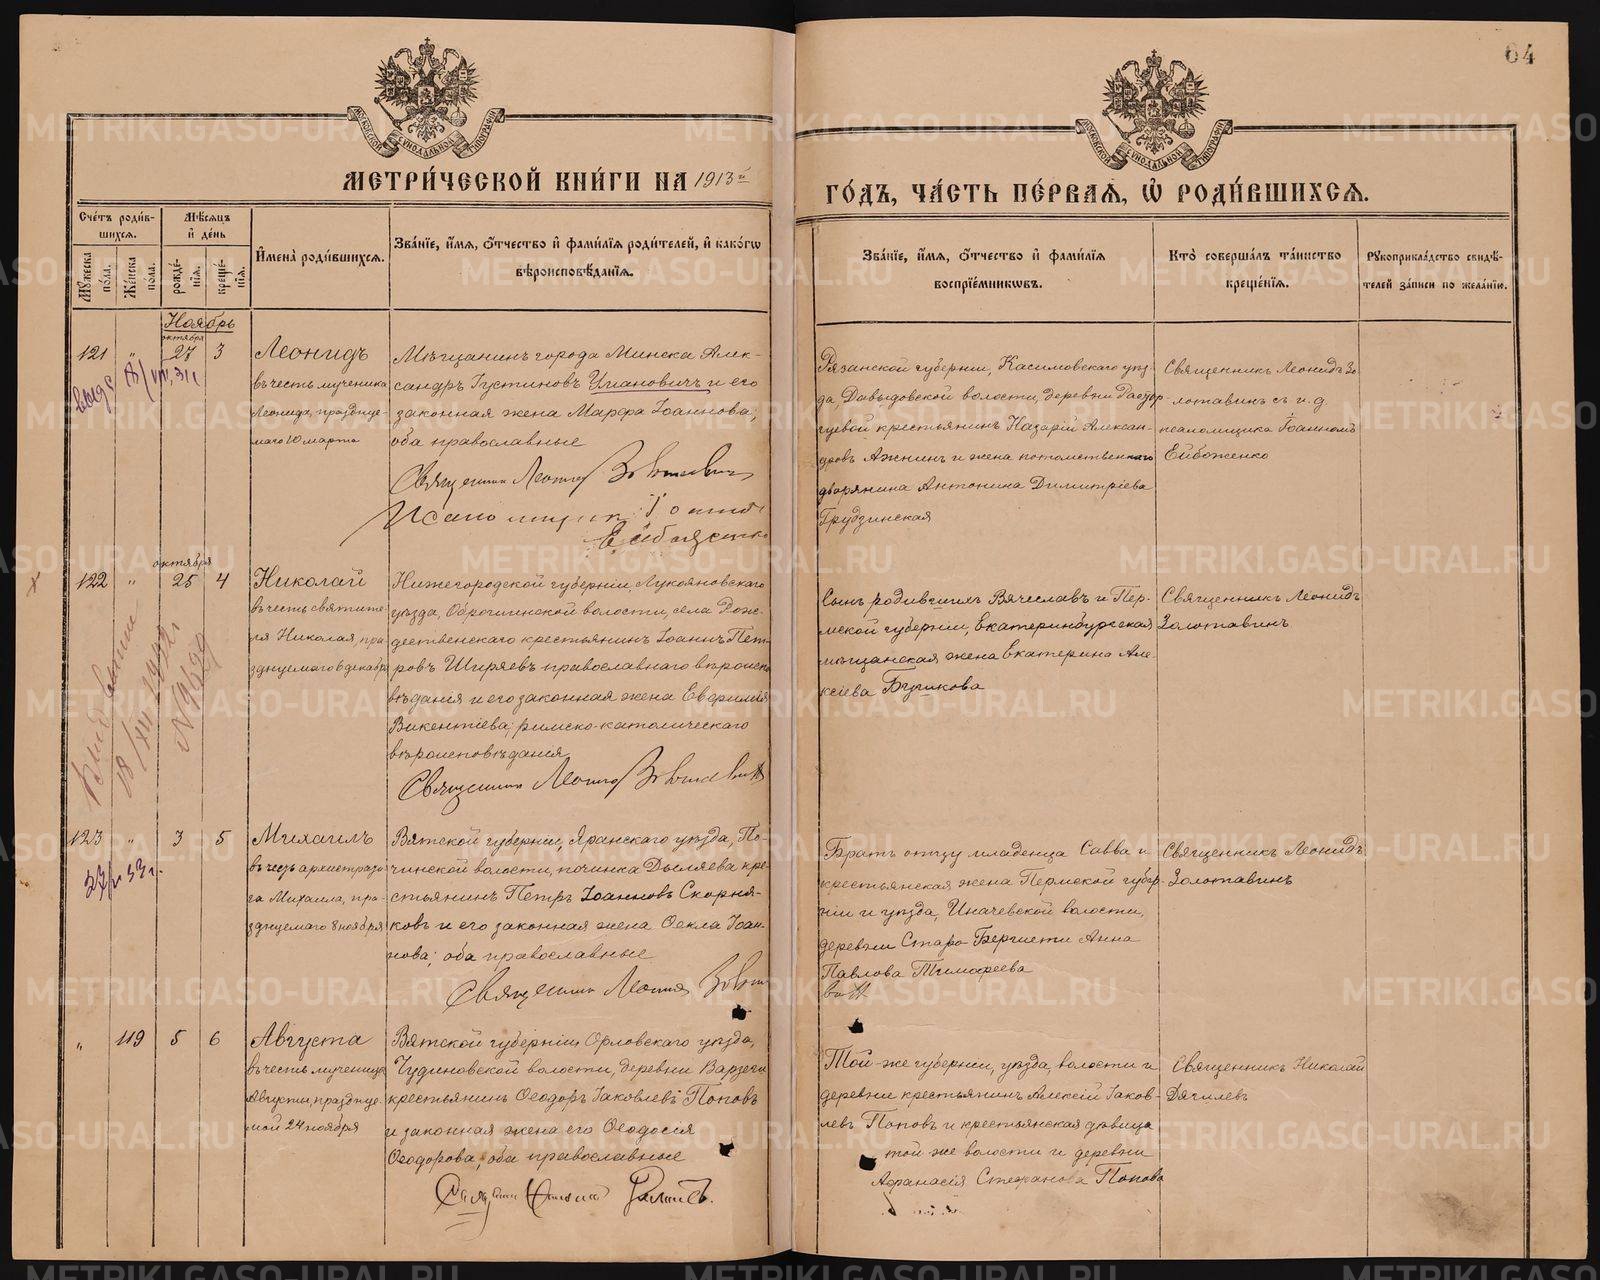 64
МЕТРИ́ЧЕСКОЙ КНИ́ГИ НА 1913й
ГО́ДЪ, ЧА́СТЬ ПЕ́РВАЯ, Ѡ҆ РОДИ́ВШИХСЯ.
Сче́тъ роди́в-
шихся.
Мѣ́сяцъ
и҆ де́нь
Мꙋ́жеска по́ла.
Же́нска по́ла.
рожде́-нїѧ.
креще́-нїѧ.
И҆мена̀ роди́вшихсѧ.
Зва́нїе, и҆́мѧ, ѻ҆́тчество и҆ фами́лїѧ роди́телей, и҆ како́гѡ
вѣроисповѣ́данїѧ.
Зва́нїе, и҆́мѧ, ѻ҆́тчество и҆ фами́лїѧ
воспрїе́мникѡвъ.
Кто̀ соверша́лъ та́инство
креще́нїѧ.
Рꙋкоприкла́дство свидѣ́-
телей за́писи по жела́нїю.
Ноябрь
октября
121 " 27 3
Леонидъ
въ честь мученика
Леонида, празднуе-
маго 10 марта
Мѣщанинъ города Минска Алек-
сандръ Іустиновъ Имановичъ и его
законная жена Марфа Іоаннова;
оба православные
Священникъ
Рязанской губерніи, Касимовскаго уѣз-
да, Давыдовской волости, деревни
крестьянинъ Назарій Алексан-
дровъ Ажнинъ и жена потомственнаго
дворянина Антонина Димитріева
Грудзинская
Священникъ Леонидъ Зо-
лотавинъ съ и. д.
псаломщика Іоанномъ
Ейбоженко
октября
122 " 25 4
18/XII 1942 г
N 1629
Николай
въ честь святите-
ля Николая, пра-
зднуемаго 6 декабря
Нижегородской губерніи, Лукояновскаго
уѣзда, Оброчинской волости, села Рож-
дественскаго крестьянинъ Іоаннъ Пет-
ровъ Ширяевъ православнаго вѣроиспо-
вѣданія и его законная жена Евфимія
Викентіева; римско-католическаго
вѣроисповѣданія
Священникъ
Сынъ родившихъ Вячеславъ и Пер-
мской губерніи, Екатеринбургская
мѣщанская жена Екатерина Але-
ксіева Бушкова
Священникъ Леонидъ
Золотавинъ
123 " 3 5
Михаилъ
въ честь архистрати-
га Михаила, пра-
зднуемаго 8 ноября
Вятской губерніи, Яранскаго уѣзда, По-
чинской волости, починка Дыляева кре-
стьянинъ Петръ Іоанновъ Скорня-
ковъ и его законная жена Ѳекла Іоан-
нова; оба православные
Священникъ
Братъ отцу младенца Савва и
крестьянская жена Пермской губер-
ніи и уѣзда, волости,
деревни Старо- Анна
Павлова Тимофеева
Священникъ Леонидъ
Золотавинъ
" 119 5 6
Августа
въ честь мученицы
Августы, празднуе-
мой 24 ноября
Вятской губерніи Орловскаго уѣзда,
Чудиновской волости, деревни
крестьянинъ Ѳеодоръ Іаковлевъ Поповъ
и законная жена его Ѳеодосія
Ѳеодорова; оба православные
Той-же губерніи, уѣзда, волости и
деревни крестьянинъ Алексій Іаков-
левъ Поповъ и крестьянская дѣвица
той же волости и деревни
Афанасія Стефанова Попова
Священникъ Николай
Дягилевъ
METRIKI.GASO-URAL.RU